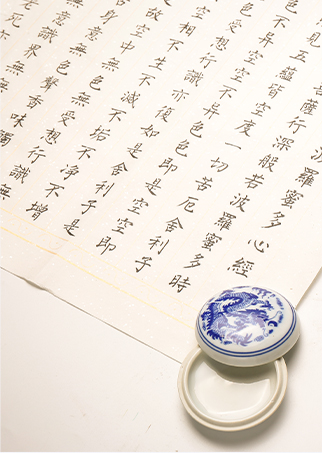 般若波羅蜜多心經
薩行深般若波羅蜜多時
見五蘊皆空度一切苦厄舍利子
不異空空不異色色即是空空即
受想行識亦復如是舍利子是
相不生不滅不垢不淨不增
故空中無色無受想行識無
意無色聲香味觸
識界無
老死